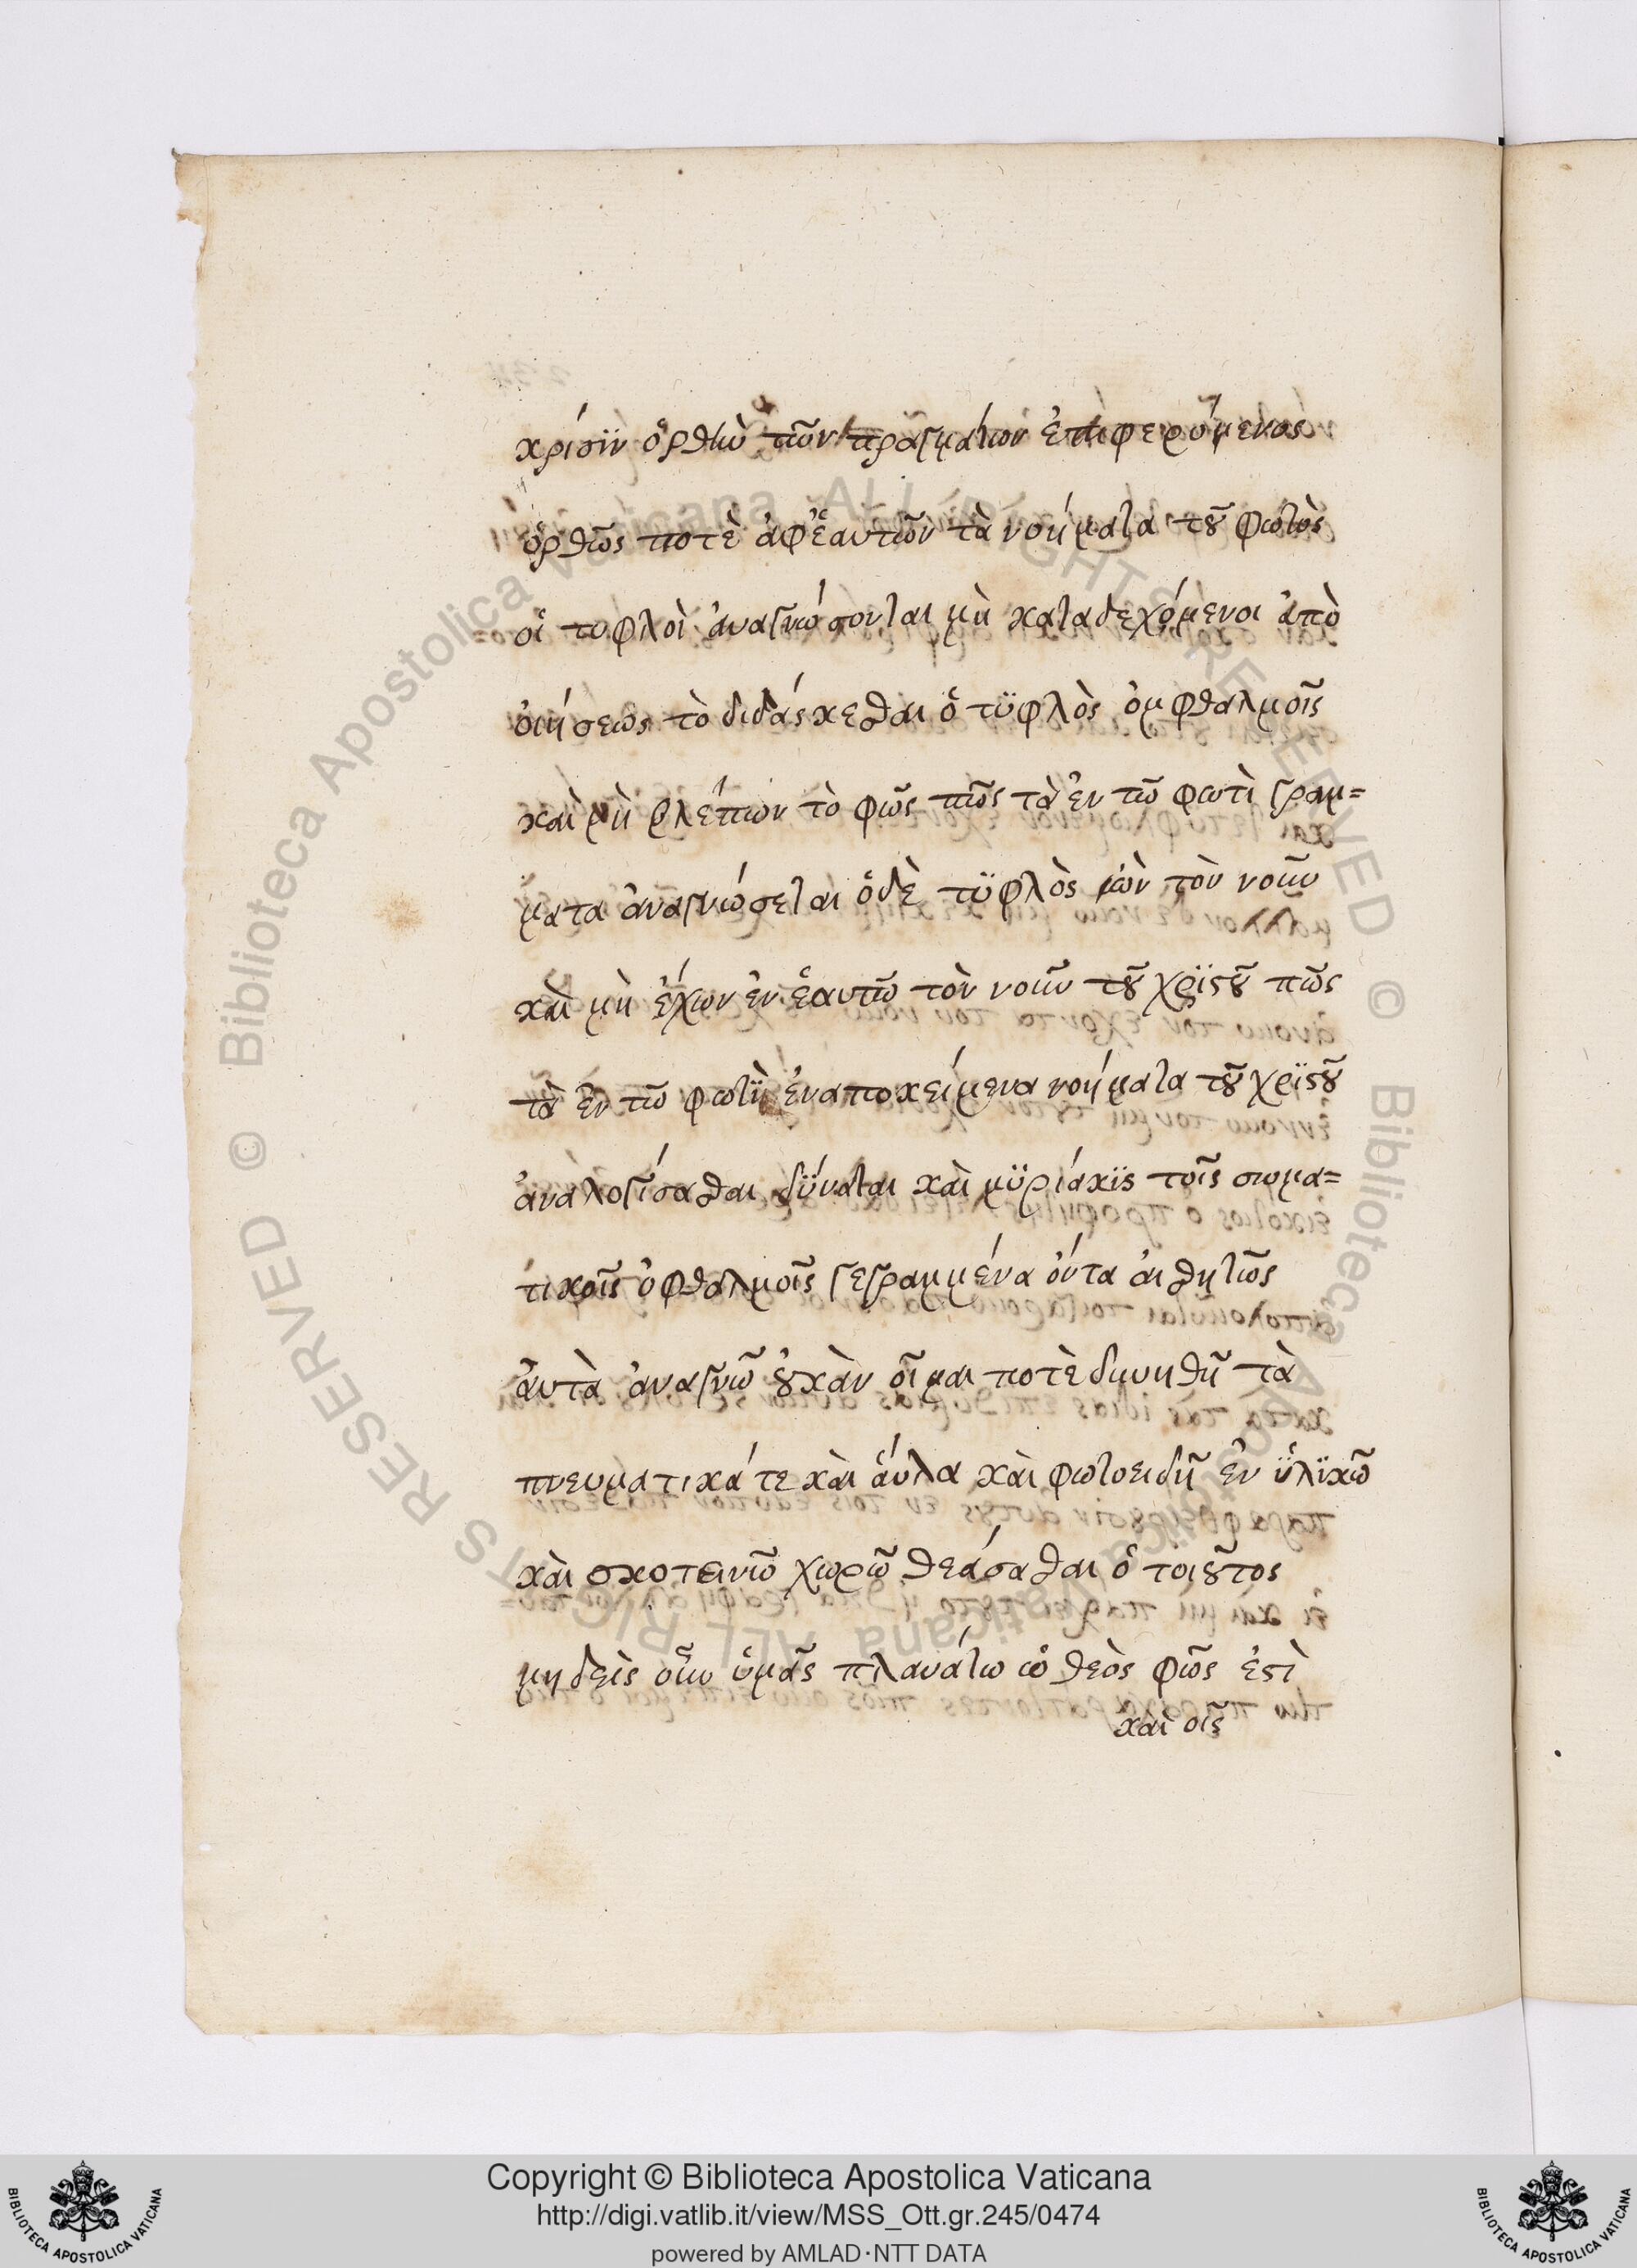 κρίσϊν ὀρθὴν τῶν πραγμάτων ἐπιφερόμενος
ὀρθῶς ποτὲ ἀφ᾽ἑαυτῶν τὰ νοήματα τοῦ φωτὸς
οἱ τυφλοὶ ἀναγνώσονται μὴ καταδεχόμενοι ἀπὸ
ὀιήσεως τὸ διδάσκεσθαι ὁ τϋφλὸς ὀμφθαλμοῖς
καὶ μὴ βλέπων τὸ φῶς πῶς τὰ ἐν τῶ φωτὶ γραμ=
ματα ἀναγνώσεται ὁδὲ τϋφλὸς ὼν τὸν νοῦν
καὶ μὴ ἔχων ἐν ἑαυτῶ τὸν νοῦν τοῦ χρϊστοῦ πῶς
τὰ ἐν τῶ φωτϊ ἐναποκείμενα νοήματα τοῦ χρϊστοῦ
ἀναλογίσασθαι δϋναται κὰι μϋριάκϊς τοῖς σωμα=
τικοῖς ὀφθαλμοῖς γεγραμμένα ὄντα ἀισθητῶς
ἀυτὰ ἀναγνῶ οὐκὰν οἶμαι ποτὲ δυνηθῆ τὰ
πνευματικά τε κὰι ἄυλα κὰι φωτοειδῆ ἐν ϋλϊκῶ
κὰι σκοτεινῶ χωρῶ θεάσασθαι ὁ τοιοῦτος
μηδεὶς οὖν ὑμᾶς πλανάτω ὁ θεὸς φῶς ἐστὶ
καὶ οἷς
Copyright © Biblioteca Apostolica Vaticana
http://digi.vatlib.it/view/MSS_Ott.gr.245/0474
powered by AMLAD·NTT DATA
BIBLIOTECA APOSTOLICA VATICANA
BIBLIOTECA APOSTOLICA VATICANA
© Biblioteca Apostolica Vaticana ALL RIGHTS RESERVED
© Biblioteca Apostolica Vaticana ALL RIGHTS RESERVED